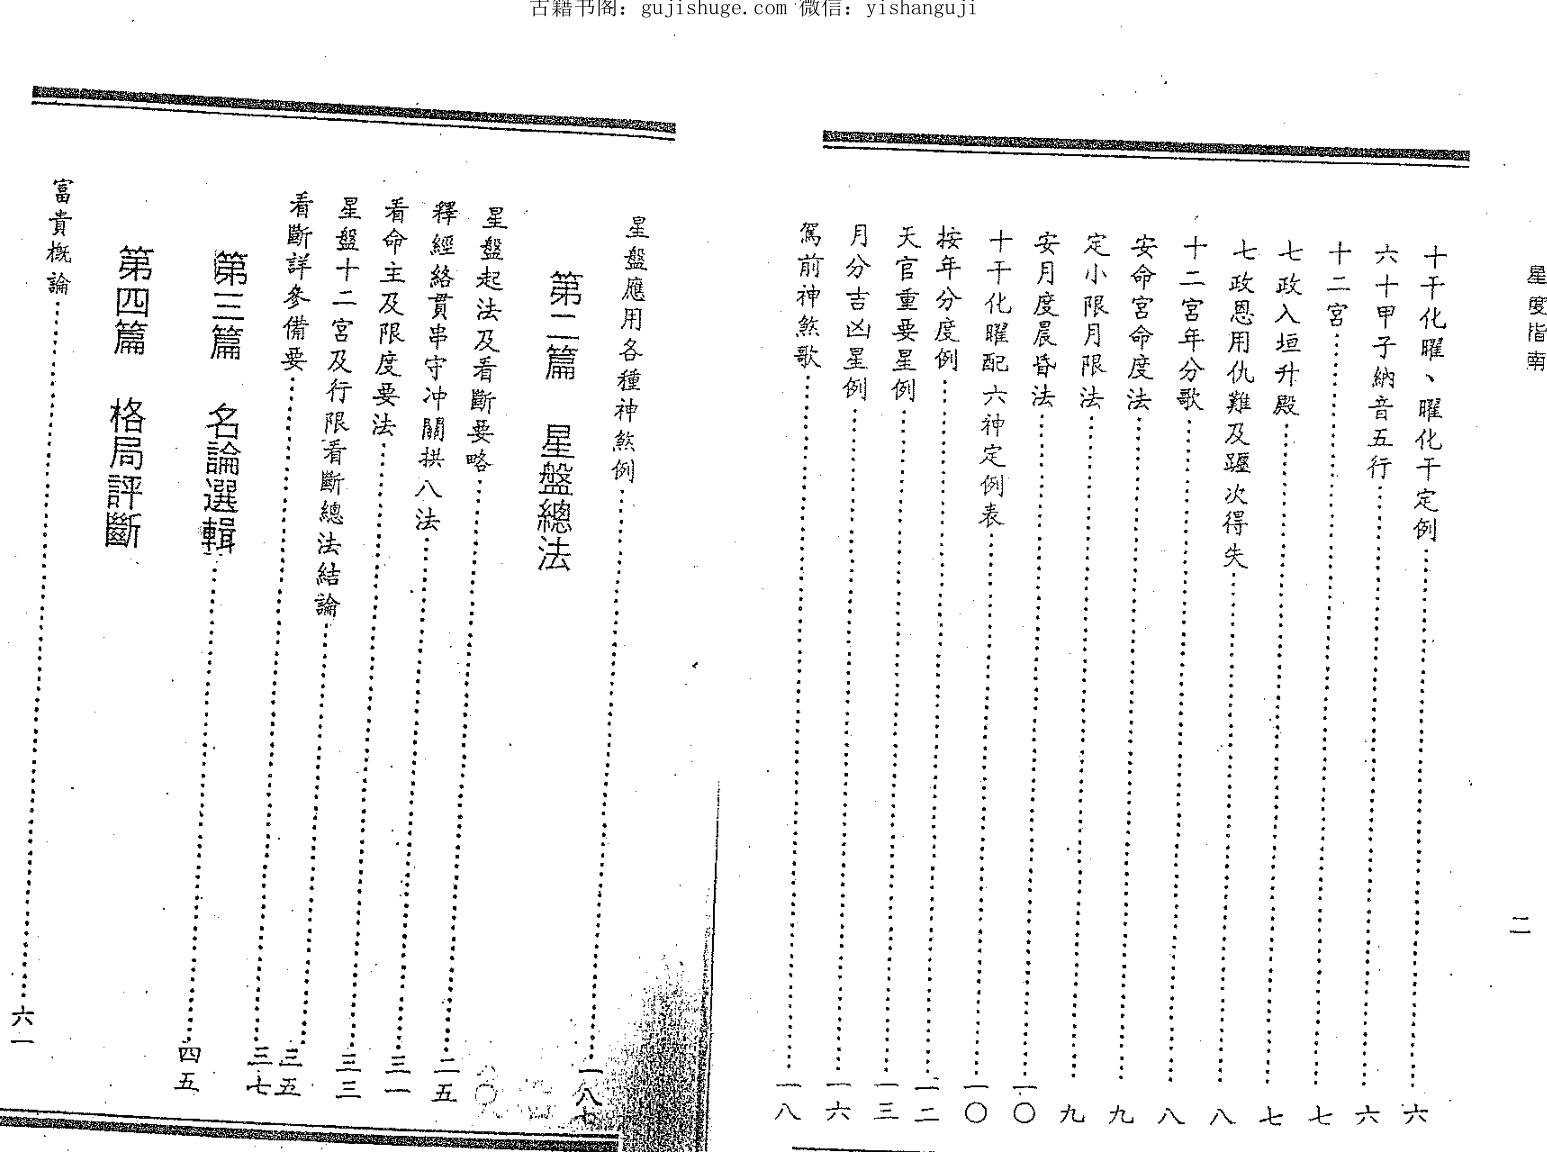 古籍书阁：gujishuge.com 微信：yishanguji
星度指南
二
十干化曜、曜化干定例⋯⋯六
六十甲子納音五行⋯⋯六
十二宮⋯⋯七
七政入垣升殿⋯⋯七
七政恩用仇難及躔次得失⋯⋯八
十二宮年分歌⋯⋯八
安命宮命度法⋯⋯九
定小限月限法⋯⋯九
安月度晨昏法⋯⋯一〇
十干化曜配六神定例表⋯⋯一〇
按年分度例⋯⋯一二
天官重要星例⋯⋯一三
月分吉凶星例⋯⋯一六
駕前神煞歌⋯⋯一八
星盤應用各種神煞例⋯⋯一八
第二篇 星盤總法
星盤起法及看斷要略⋯⋯二五
釋經絡貫串守冲關拱八法⋯⋯三一
看命主及限度要法⋯⋯三三
星盤十二宮及行限看斷總法結論⋯⋯三五
看斷詳參備要⋯⋯三七
第三篇 名論選輯⋯⋯四五
第四篇 格局評斷
富貴概論⋯⋯六一